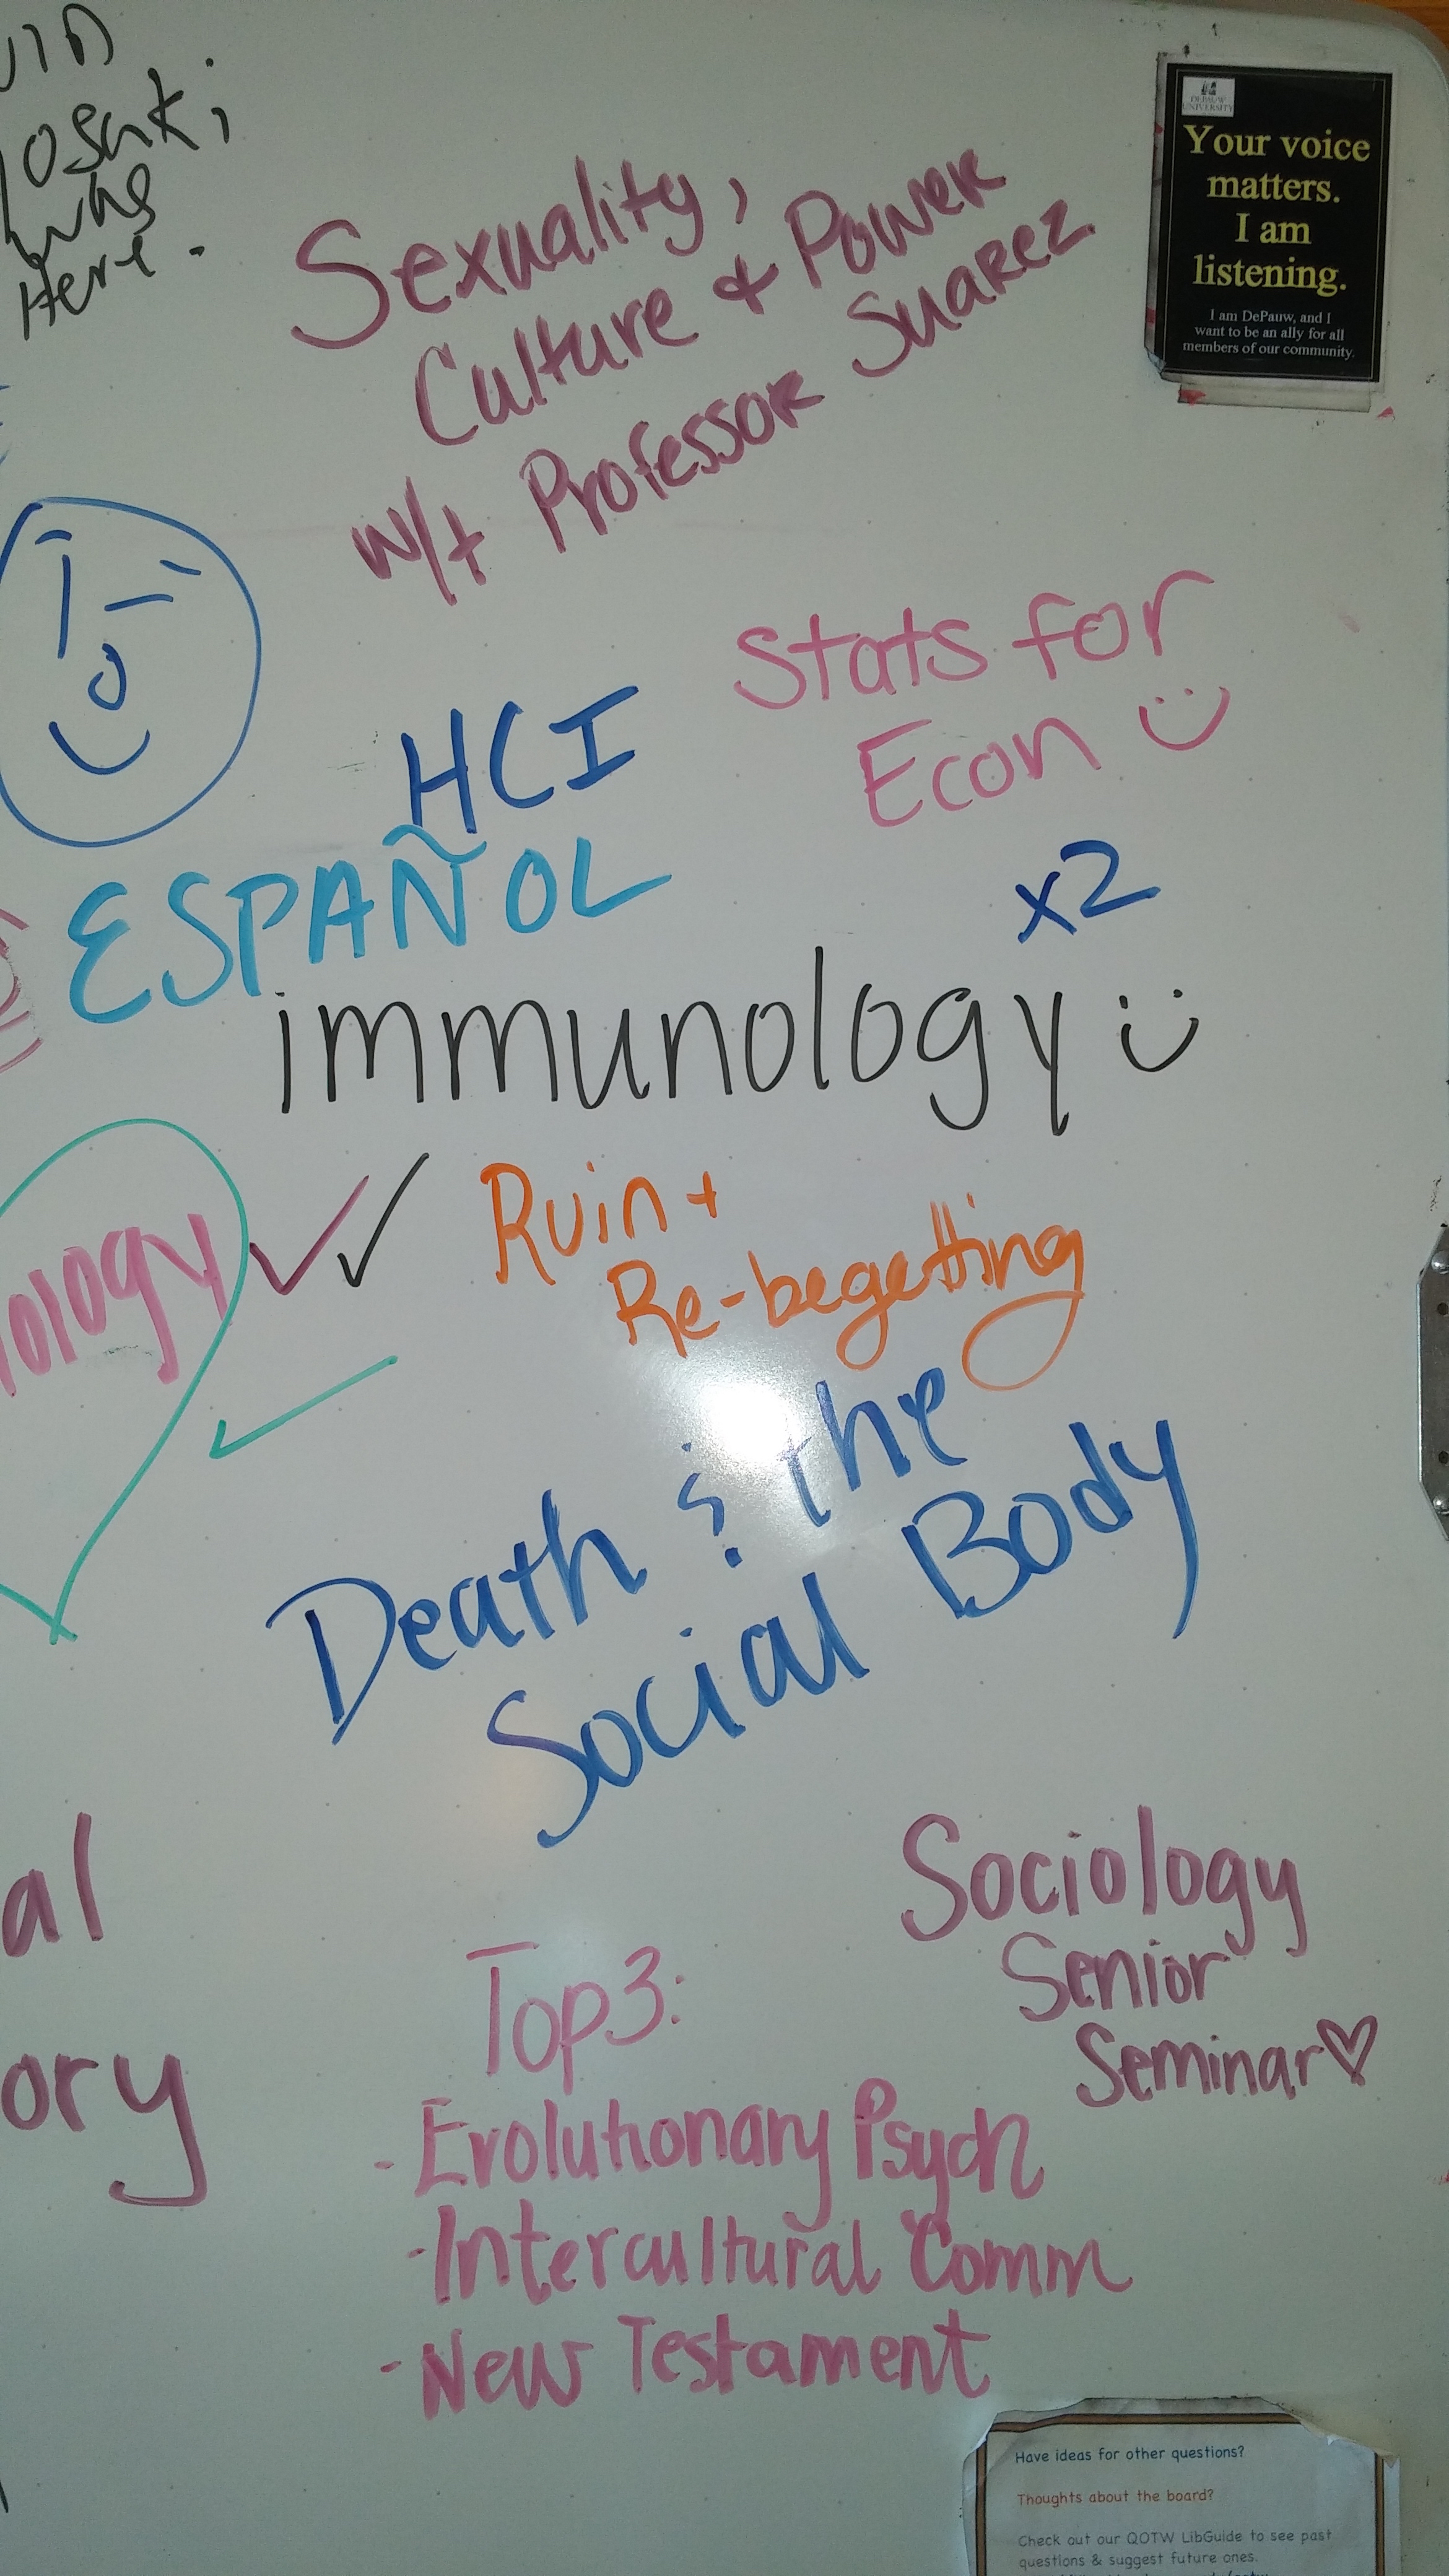 was
Here.
Sexuality,
Culture & Power
w/t Professor Suarez
DEPAUW
UNIVERSITY
Your voice
matters.
I am
listening.
I am DePauw, and I
want to be an ally for all
members of our community.
Stats for
Econ
HCI
ESPAÑOL
x2
immunology
ology
Ruin +
Re-begetting
Death & the
Social Body
al
ory
Sociology
Senior
Seminar
Top 3:
- Evolutionary Psych
- Intercultural Comm
- New Testament
Have ideas for other questions?
Thoughts about the board?
Check out our QOTW LibGuide to see past
questions & suggest future ones.